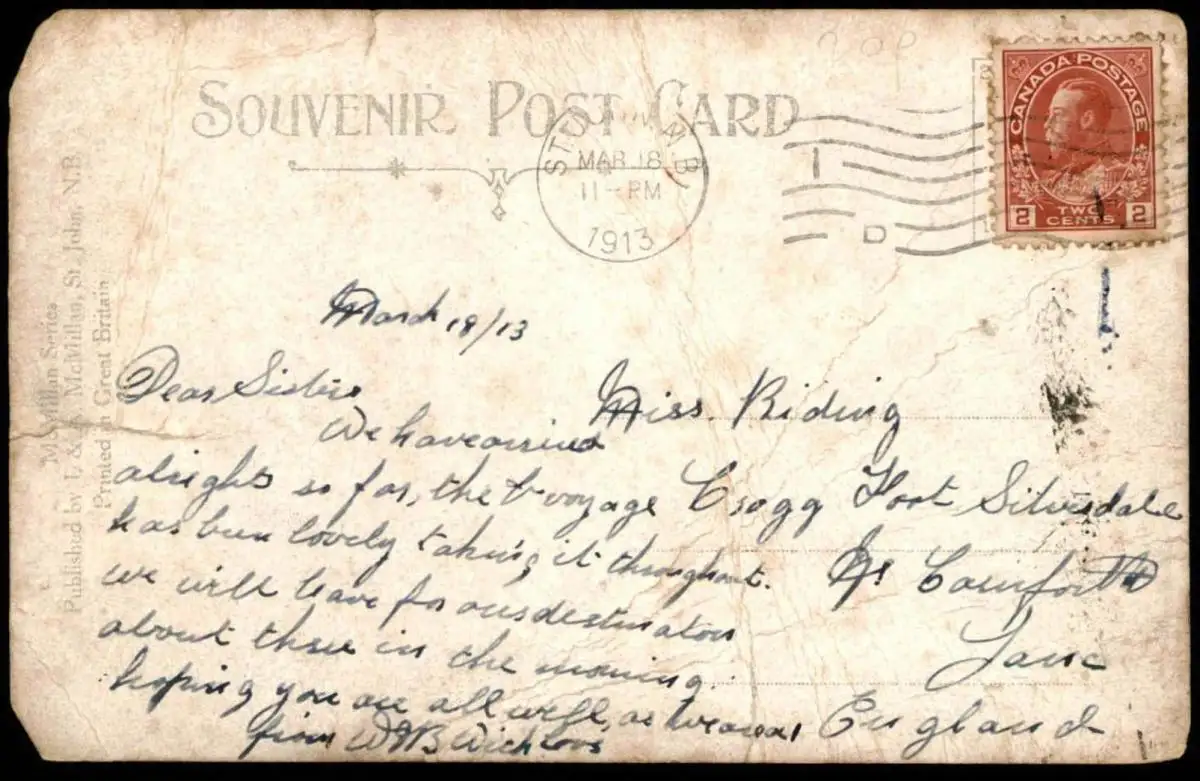 SOUVENIR POST CARD
ST. JOHN, N.B.
MAR 18
11-PM
1913
D
CANADA POSTAGE
2 TWO CENTS 2
McMillan Series
Published by J. & A. McMillan, St. John, N.B.
Printed in Great Britain
March 18/13
Dear Sister
We have arrived
alright so far, the voyage
has been lovely taking it throughout.
we will leave for our destination
about three in the morning.
hoping you are all well, as we are
from W
Miss. Riding
Cragg Foot Silverdale
Nr Carnforth
Lanc
England